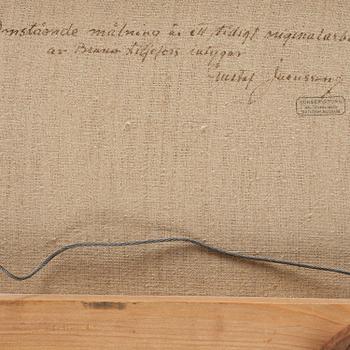 Omstående målning är ett tidigt originalarbe
av Bruno Liljefors intygar
Gustaf
KONSERVATORN